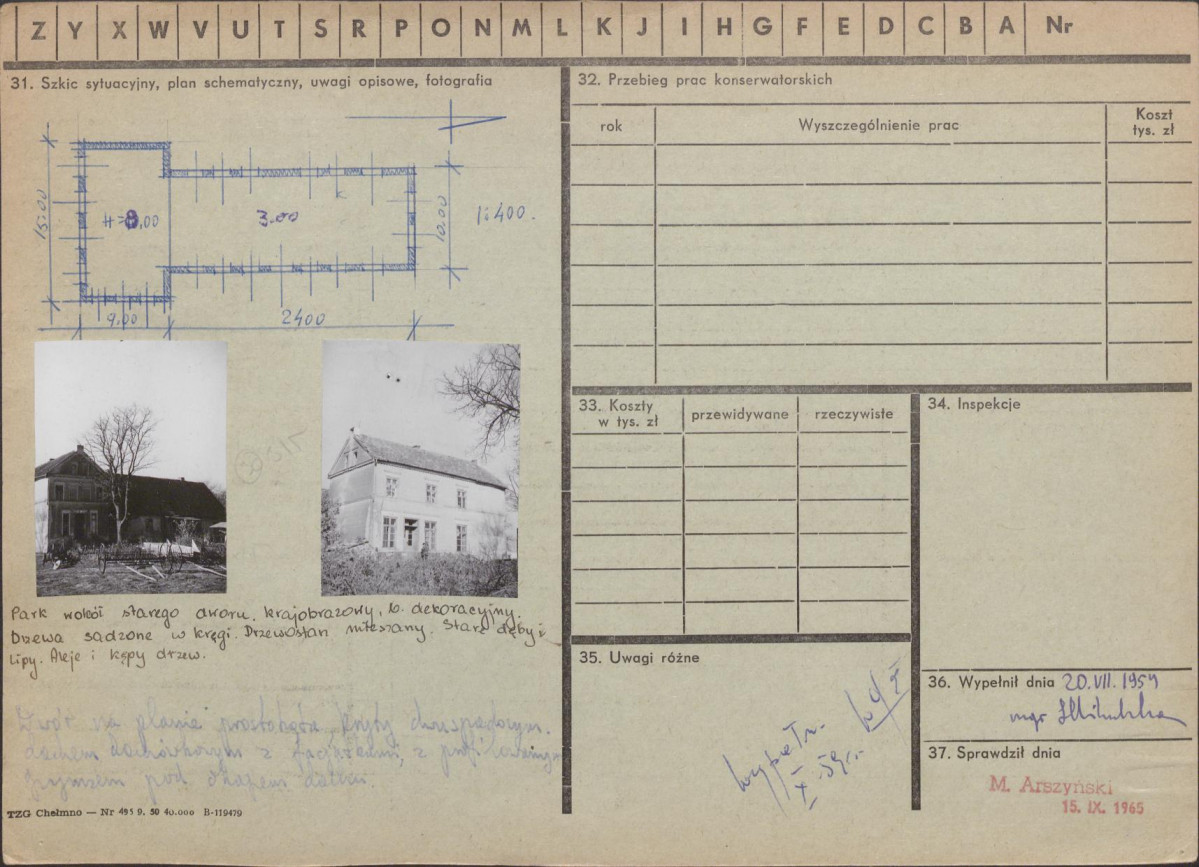 Z Y X W V U T S R P O N M L K J I H G F E D C B A Nr
31. Szkic sytuacyjny, plan schematyczny, uwagi opisowe, fotografia
15.00
3.00
10.00
1:400.
9.00
2400
Park wokół starego dworu, krajobrazowy, b. dekoracyjny.
Drzewa sadzone w kręgi. Drzewostan mieszany. Stare dęby i
lipy. Aleje i kępy drzew.
Dwór na planie prostokąta kryty dwuspadowym
dachem dachówkowym z
gzymsem pod okapem dachu.
TZG Chełmno — Nr 495 9. 50 40.000 B-119479
32. Przebieg prac konserwatorskich
rok
Wyszczególnienie prac
Koszt
tys. zł
33. Koszty
w tys. zł
przewidywane
rzeczywiste
34. Inspekcje
35. Uwagi różne
wypełn.
X. 59 r.
36. Wypełnił dnia 20.VII.1959
mgr
37. Sprawdził dnia
M. Arszyński
15. IX. 1965